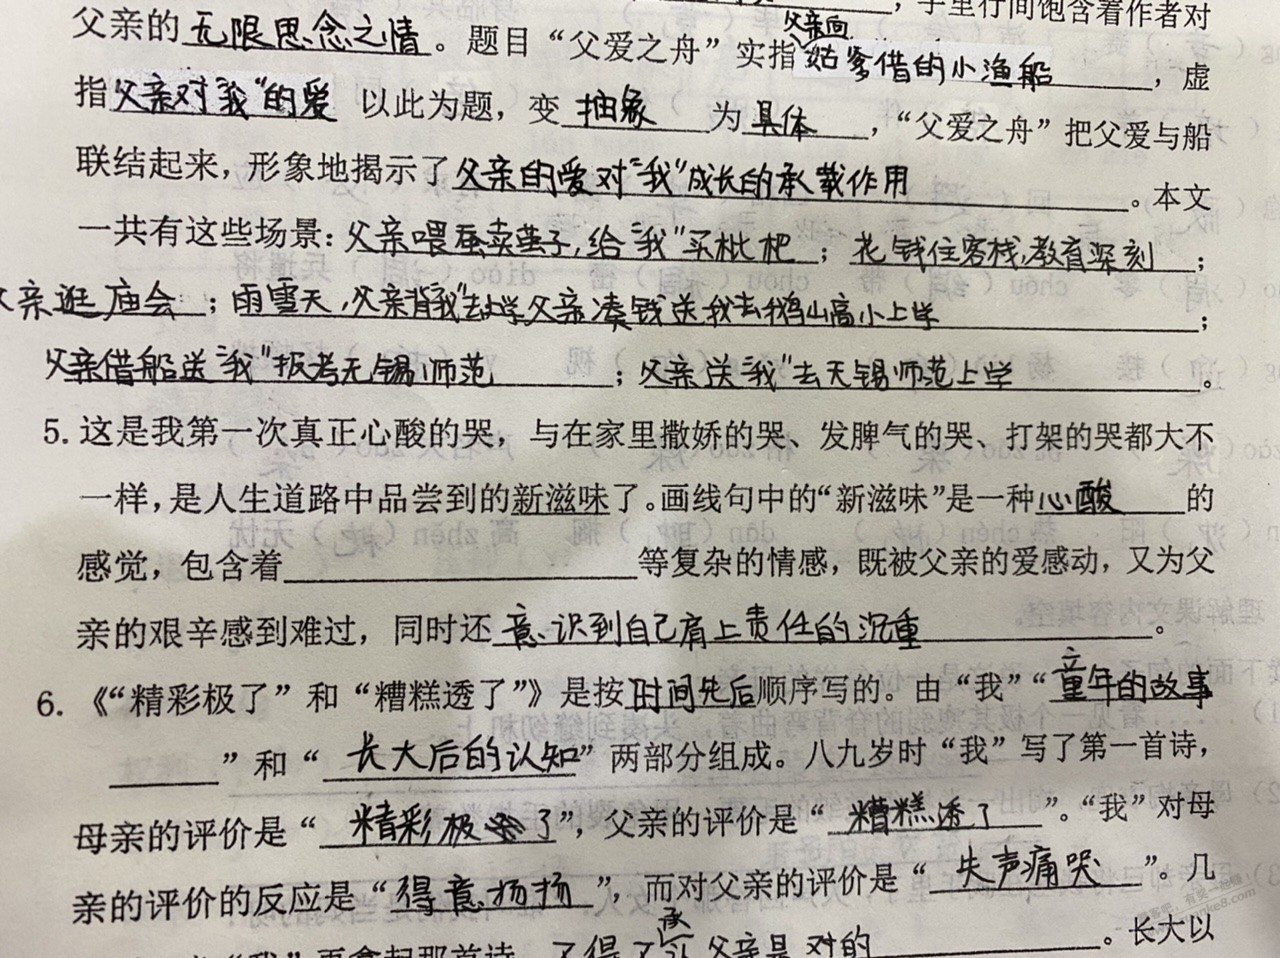 ，字里行间饱含着作者对
父亲的无限思念之情。题目“父爱之舟”实指父亲向姑爹借的小渔船，虚
指父亲对“我”的爱 以此为题，变抽象为具体，“父爱之舟”把父爱与船
联结起来，形象地揭示了父亲的爱对“我”成长的承载作用。本文
一共有这些场景：父亲喂蚕卖茧子，给“我”买枇杷；花钱住客栈，教育深刻；
父亲逛庙会；雨雪天，父亲背“我”去上学父亲凑钱送我去鹅山高小上学；
父亲借船送“我”报考无锡师范；父亲送“我”去无锡师范上学。
5. 这是我第一次真正心酸的哭，与在家里撒娇的哭、发脾气的哭、打架的哭都大不
一样，是人生道路中品尝到的新滋味了。画线句中的“新滋味”是一种心酸的
感觉，包含着等复杂的情感，既被父亲的爱感动，又为父
亲的艰辛感到难过，同时还意识到自己肩上责任的沉重。
6. 《“精彩极了”和“糟糕透了”》是按时间先后顺序写的。由“我”“童年的故事
”和“长大后的认知”两部分组成。八九岁时“我”写了第一首诗，
母亲的评价是“精彩极了”，父亲的评价是“糟糕透了”。“我”对母
亲的评价的反应是“得意扬扬”，而对父亲的评价是“失声痛哭”。几
“我”再拿起那首诗，不得不承认父亲是对的。长大以